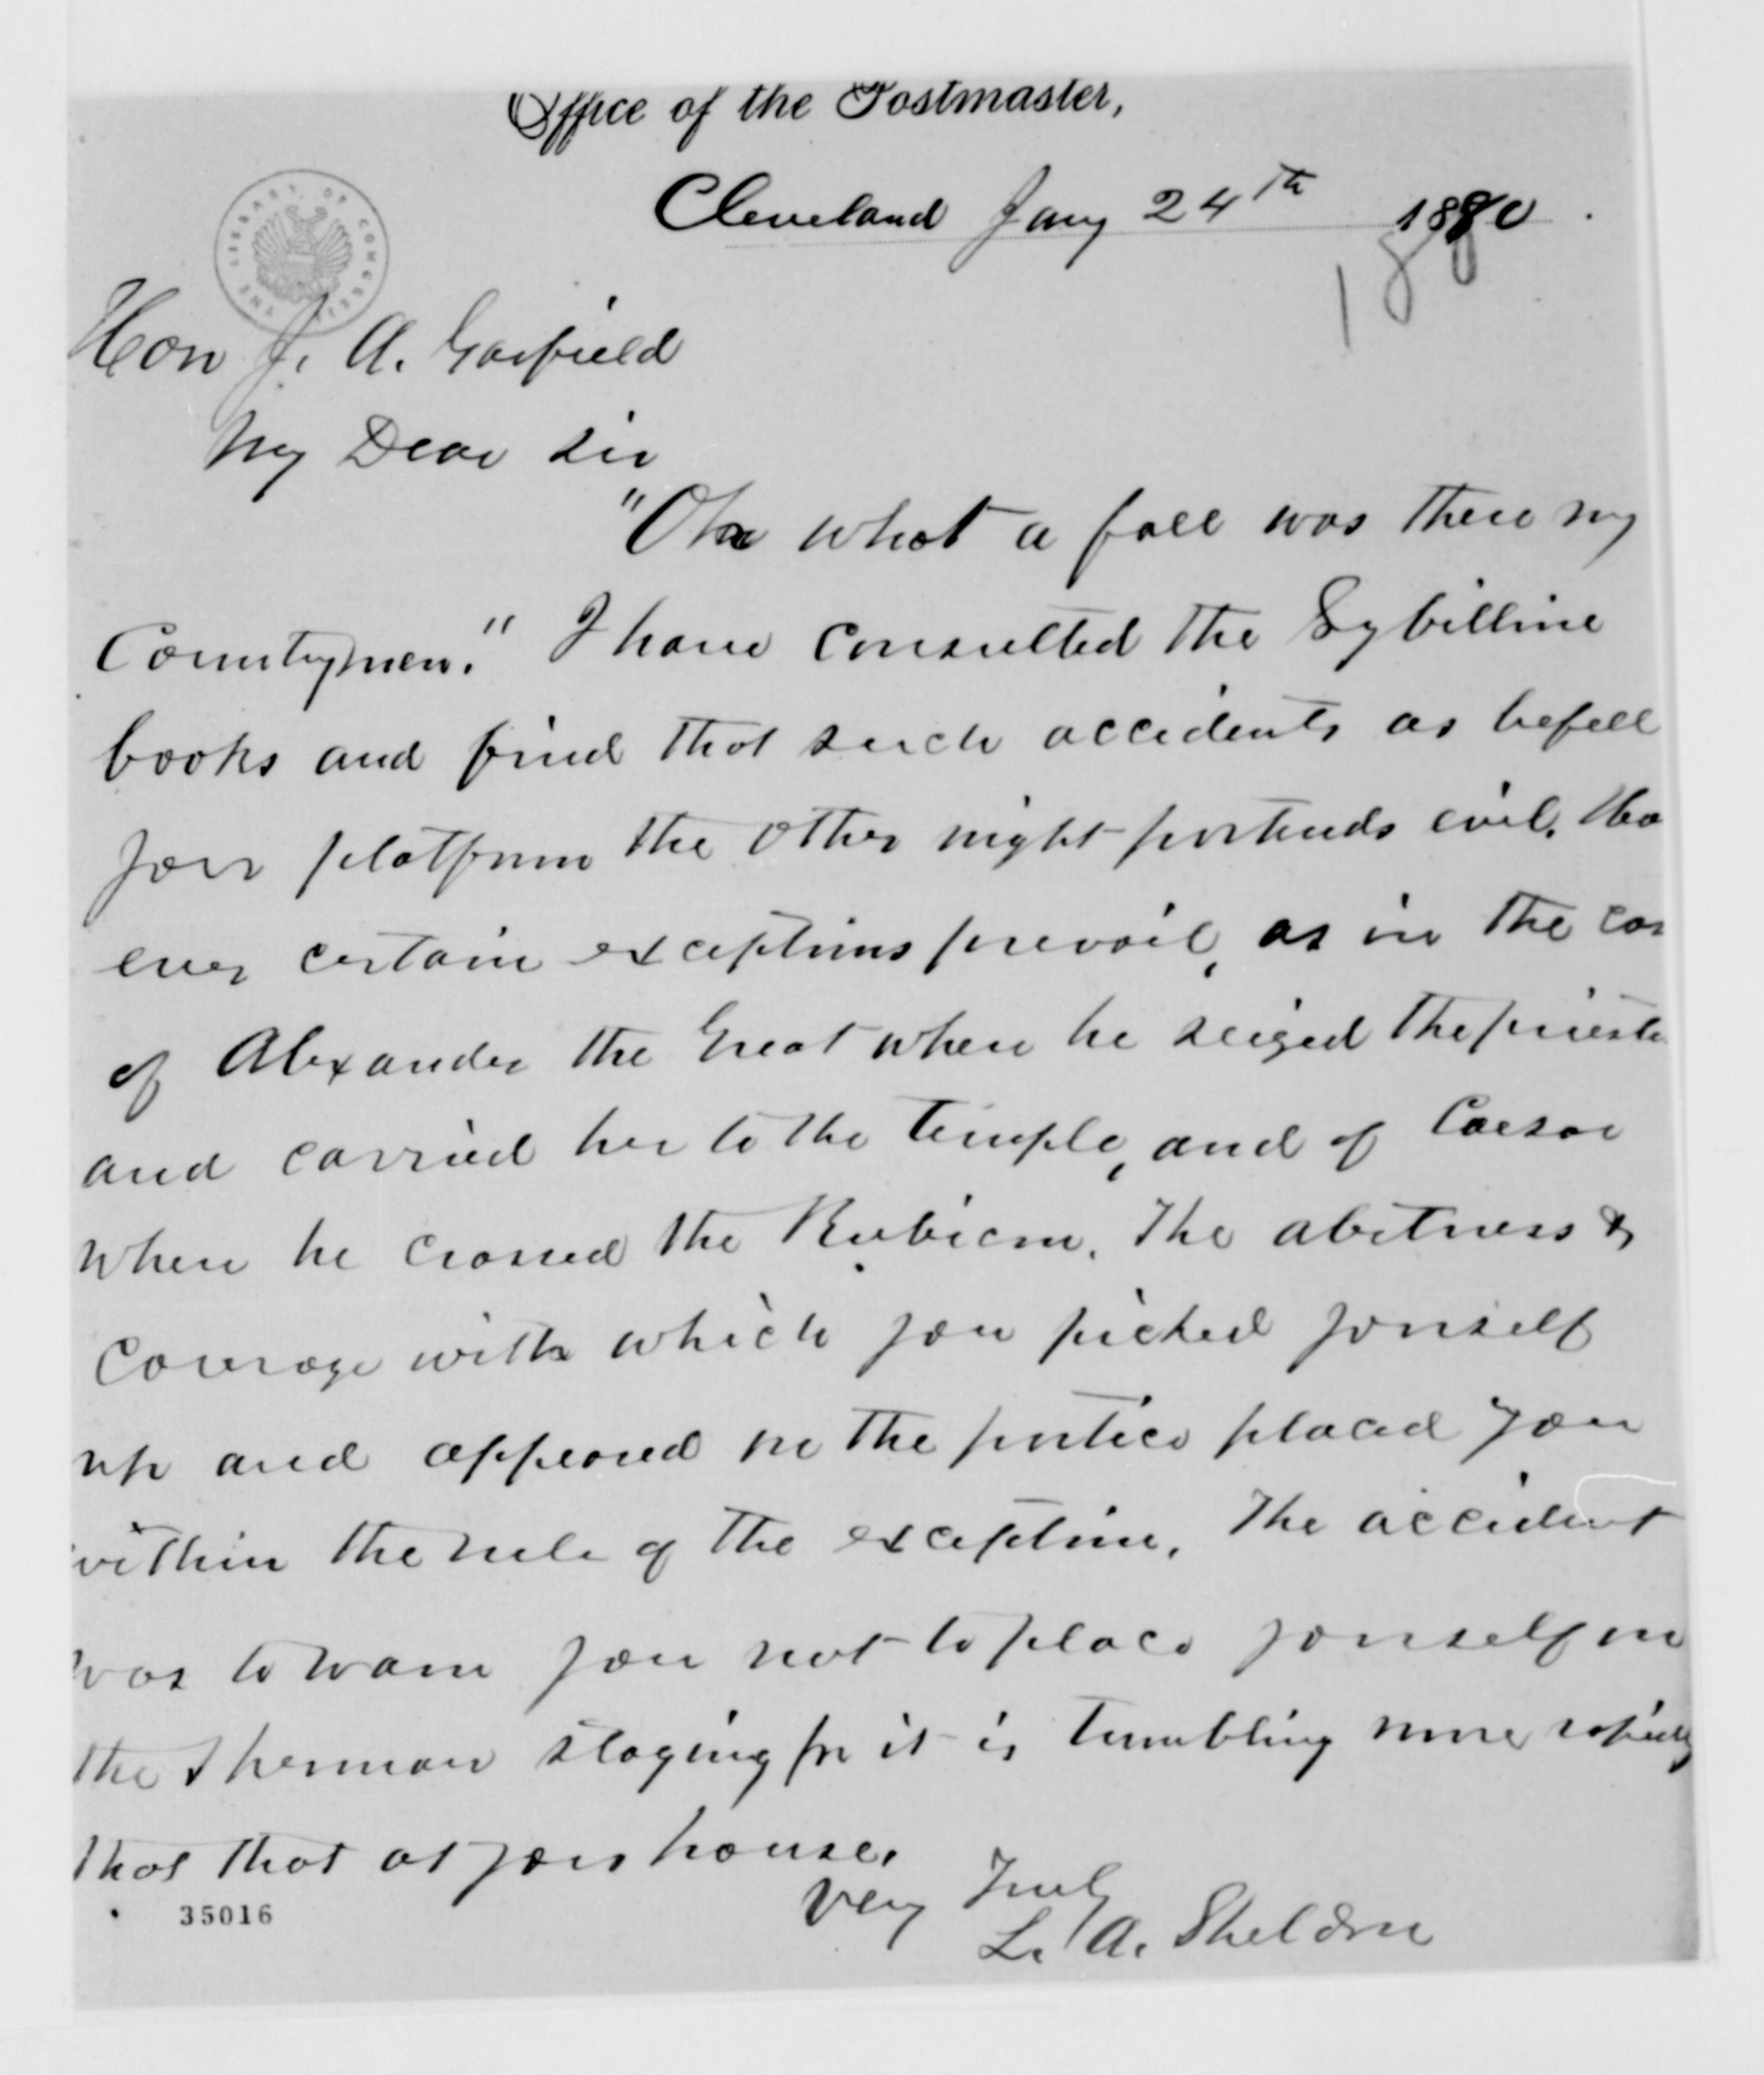 Office of the Postmaster,
Cleveland Jany 24th 1880.
188
THE LIBRARY OF CONGRESS
Hon J. A. Garfield
My Dear Sir
"Oh what a fall was there my
Countrymen." I have consulted the Sybilline
books and find that such accidents as befell
your platform the other night portends evil. How
ever certain exceptions prevail, as in the cas
of Alexander the Great when he seized the prieste
and carried her to the temple, and of Caesar
when he crossed the Rubicon. The alertness &
Courage with which you picked yourself
up and appeared on the portico placed you
within the rule of the exception. The accident
was to warn you not to place yourself on
the Sherman staging for it is tumbling more rapidly
than that at your house.
Very Truly
L. A. Sheldon
35016